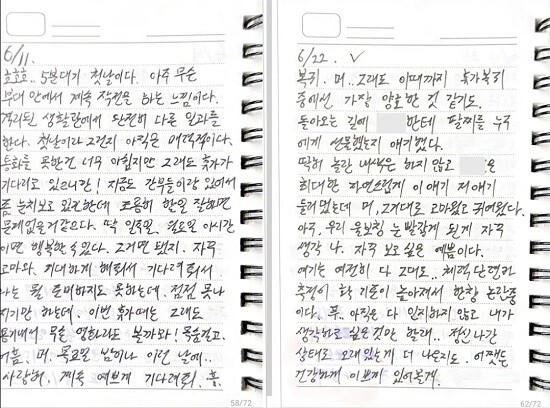 6/11.
호호호.. 5분대기 첫날이다. 아주 무슨
부대 안에서 계속 작전을 하는 느낌이다.
격리된 생활관에서 완전히 다른 일과를
한다. 첫날이라 그런지 아직은 매력적이다.
통화를 못한건 너무 아쉽지만 그래도 휴가가
기다리고 있으니깐! 지금도 간부들이랑 있어서
좀 눈치보고 있긴한데 조용히 할일 잘하면
문제없을거같은다. 딱 일주일, 월요일 아시간
이면 행복할 수 있다. 그거면 됐지. 자꾸
고마와. 기대하게 해줘서 기다려줘서.
나는 뭘 준비하지도 못하는데. 점점 못나
지기만 하는데. 이번 휴가때는 그래도
용기내서 무슨 영화라도 볼까와! 목숨걸고.
어흠. 머. 목요일 날이나 이런 날에..
사랑해. 계속 예쁘게 기다려줘. 흠.
58/72
6/22. ✓
복귀. 머.. 그래도 이때까지 휴가복귀
중에선 가장 양호한 것 같기도.
돌아오는 길에 한테 팔찌를 누구
에게 선물했는지 얘기했다.
딱히 놀란 내색은 하지 않고 은
최대한 자연스럽게 이 얘기 저 얘기
들려줬는데 머, 그거대로 고마웠고 귀여웠다.
아우. 우리 울보찡 눈 빨갛게 된게 자꾸
생각 나. 자꾸 보고싶은 예쁨이다.
여기는 여전히 다 그대로.. 체력단련가
측정이 확 기준이 높아져서 한창 논란중
이다. 뭐. 아직은 다 인지하지 않고 내가
생각하고 싶은것만 할래.. 정신나간
상태로 오래있는게 더 나은지도. 어쨋든
건강하게 이쁘게 있어볼게.
62/72